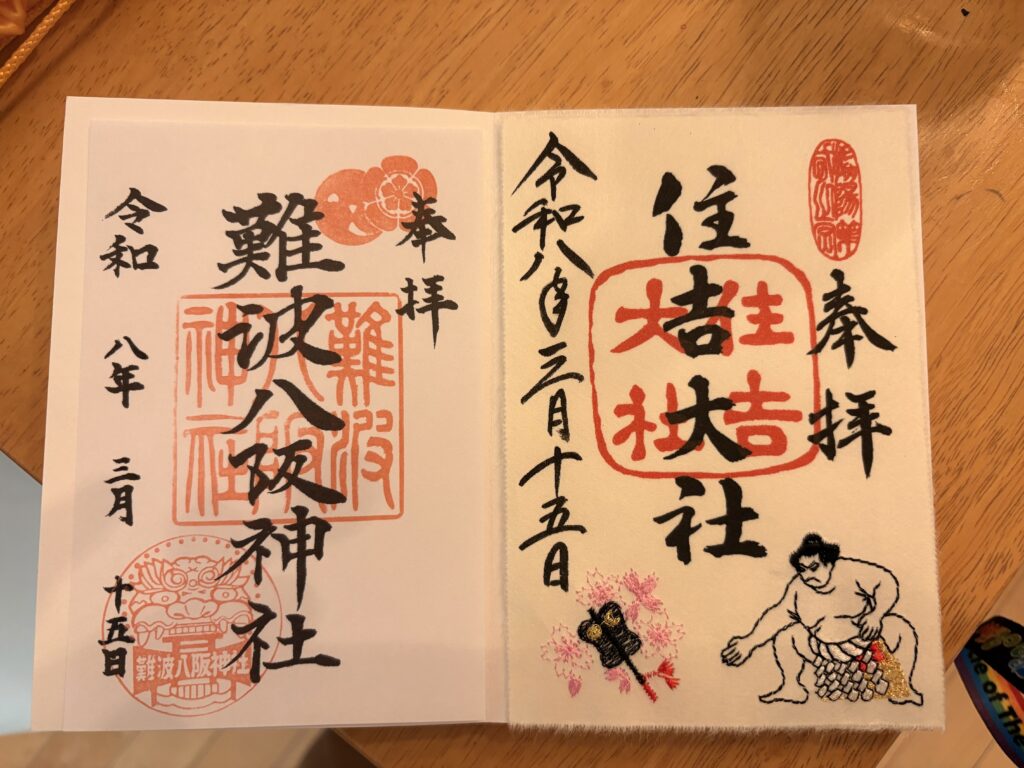 奉拝
住吉大社
住吉大社
令和八年三月十五日
奉拝
難波八阪神社
難波八阪神社
令和 八年 三月 十五日
難波八阪神社